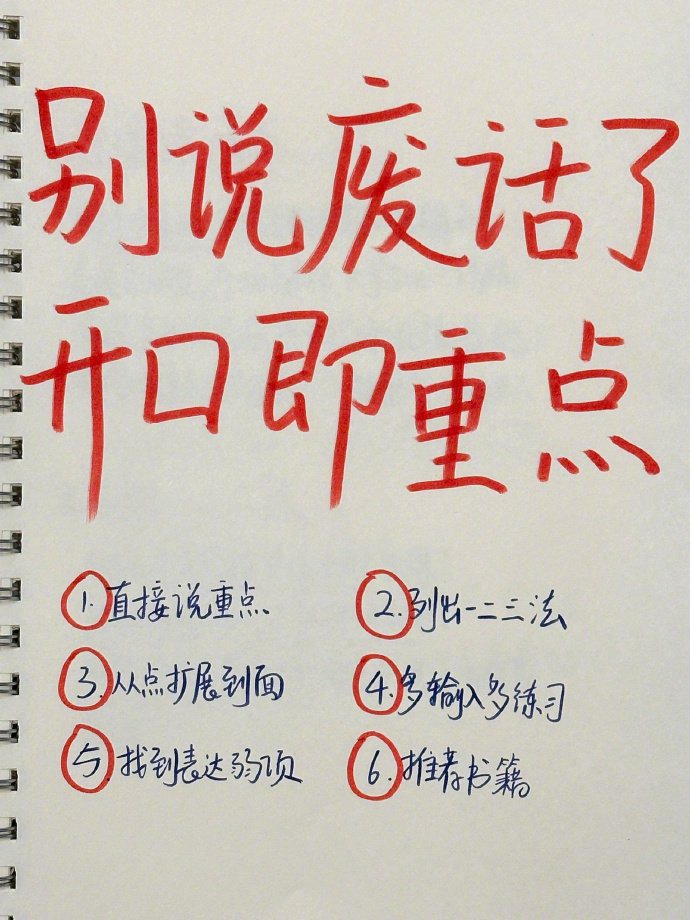 别说废话了
开口即重点
1.直接说重点
2.列出一二三法
3.从点扩展到面
4.多输入多练习
5.找到表达弱项
6.推荐书籍